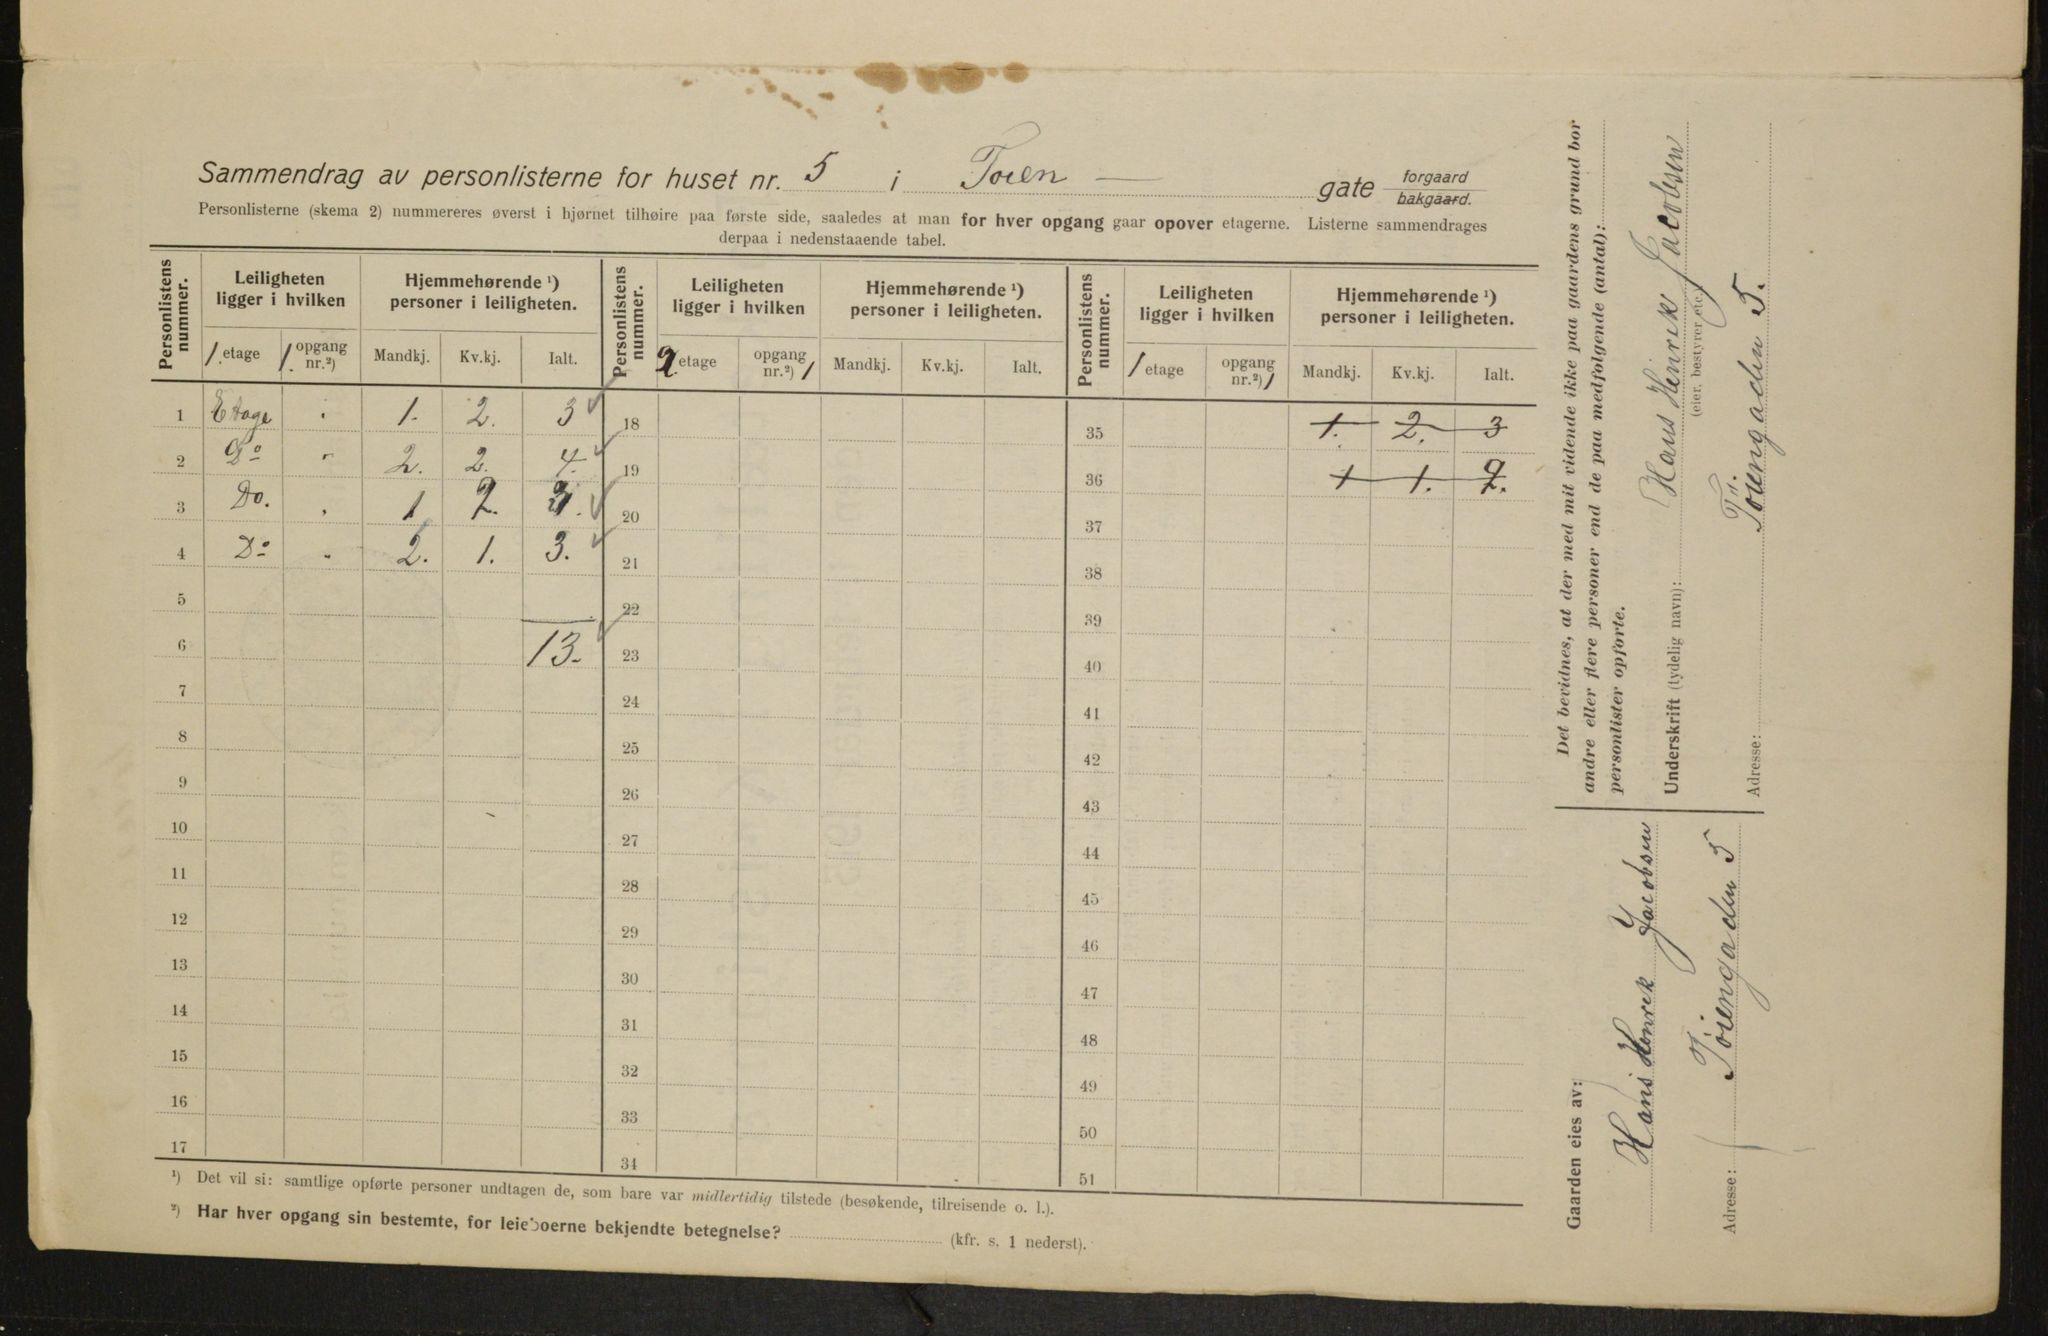 Sammendrag av personlisterne for huset nr. 5 i Toien — gate forgaard / bakgaard.
Personlisterne (skema 2) nummereres øverst i hjørnet tilhøire paa første side, saaledes at man for hver opgang gaar opover etagerne. Listerne sammendrages
derpaa i nedenstaaende tabel.
Personlistens nummer. Leiligheten ligger i hvilken Hjemmehørende ¹) personer i leiligheten. Personlistens nummer. Leiligheten ligger i hvilken Hjemmehørende ¹) personer i leiligheten. Personlistens nummer. Leiligheten ligger i hvilken Hjemmehørende ¹) personer i leiligheten.
1. etage 1. opgang nr.²) Mandkj. Kv.kj. Ialt. 2 etage opgang nr.²) 1 Mandkj. Kv.kj. Ialt. 1 etage opgang nr.²) 1 Mandkj. Kv.kj. Ialt.
1 Etage " 1. 2. 3 18 35 1. 2. 3
2 Do " 2. 2. 4. 19 36 1 1. 2.
3 Do. " 1 2. 3. 20 37
4 Do " 2. 1. 3. 21 38
5 22 39
6 13. 23 40
7 24 41
8 25 42
9 26 43
10 27 44
11 28 45
12 29 46
13 30 47
14 31 48
15 32 49
16 33 50
17 34 51
¹) Det vil si: samtlige opførte personer undtagen de, som bare var midlertidig tilstede (besøkende, tilreisende o. l.).
²) Har hver opgang sin bestemte, for leieboerne bekjendte betegnelse? (kfr. s. 1 nederst).
Det bevidnes, at der med mit vidende ikke paa gaardens grund bor
andre eller flere personer end de paa medfølgende (antal):
personlister opførte.
Underskrift (tydelig navn): Hans Henrik Jacobsen
(eier, bestyrer etc.)
Adresse: Töiengaden 5.
Gaarden eies av:
Hans Henrik Jacobsen
Adresse: Töiengaden 5